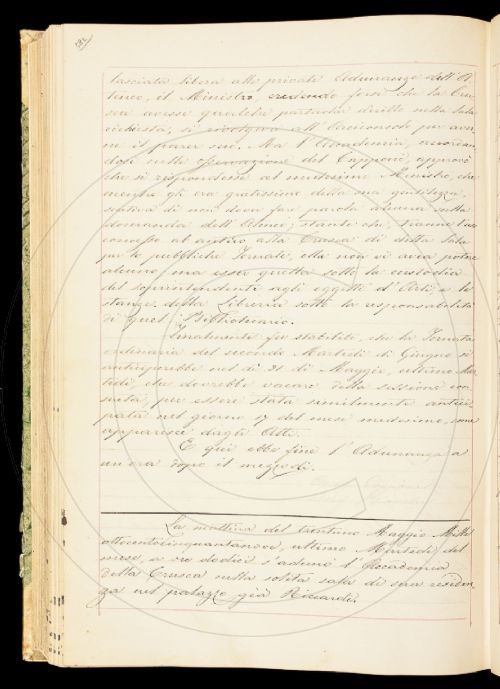 182
lasciata libera alle private Adunanze dell'A-
teneo, il Ministro, credendo forse che la Cru-
sca avesse qualche particolar diritto sulla sala
richiesta, si rivolgeva all'Arciconsolo per aver-
ne il parer suo. Ma l'Accademia, accordan-
dosi nelle osservazioni del Capponi, approvò
che si rispondesse al medesimo Ministro, che
mentre gli era gratissima della sua gentilezza
sentiva di non dover fare parola alcuna sulla
domanda dell'Ateneo; stante che, tranne l'uso
concesso ab antiquo alla Crusca di detta Sala
per le pubbliche Tornate, ella non vi avea potere
alcuno, ma esser quella sotto la custodia
del soprintendente agli oggetti d'Arti, e le
stanze della Libreria sotto la responsabilità
di quel Bibliotecario.
Finalmente fu stabilito, che la Tornata
ordinaria del secondo Martedì di Giugno si
anticiperebbe nel dì 31 di Maggio, ultimo Mar-
tedì, che dovrebbe vacare della sessione con-
sueta, per essere stata similmente antici-
pata nel giorno 17 del mese medesimo, come
apparisce dagli Atti.
E qui ebbe fine l'Adunanza a
un'ora dopo il mezzodì.
La mattina del trentuno Maggio Mille
ottocentocinquantanove, ultimo Martedì del
mese, a ore dodici s'adunò l'Accademia
della Crusca nella solita sala di sua residen-
za nel palazzo già Riccardi.